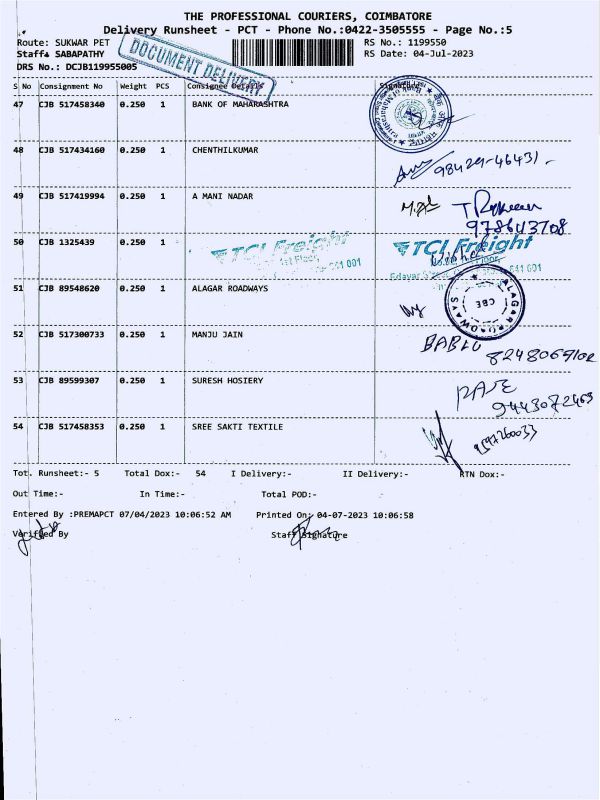 THE PROFESSIONAL COURIERS, COIMBATORE
Delivery Runsheet - PCT - Phone No.:0422-3505555 - Page No.:5
Route: SUKWAR PET RS No.: 1199550
Staff: SABAPATHY RS Date: 04-Jul-2023
DRS No.: DCJB119955005
DOCUMENT DELIVERY
S No Consignment No Weight PCS Consignee Details Signature
47 CJB 517458340 0.250 1 BANK OF MAHARASHTRA
48 CJB 517434160 0.250 1 CHENTHILKUMAR
98429-46431
49 CJB 517419994 0.250 1 A MANI NADAR
978643708
50 CJB 1325439 0.250 1 TCI Freight TCI Freight
1st Floor
641 001 641 001
51 CJB 89548620 0.250 1 ALAGAR ROADWAYS
ALAGAR ROADWAYS CBE
52 CJB 517300733 0.250 1 MANJU JAIN BABLU
53 CJB 89599307 0.250 1 SURESH HOSIERY
9443072463
54 CJB 517458353 0.250 1 SREE SAKTI TEXTILE
9597260033
Tot. Runsheet:- 5 Total Dox:- 54 I Delivery:- II Delivery:- RTN Dox:-
Out Time:- In Time:- Total POD:-
Entered By :PREMAPCT 07/04/2023 10:06:52 AM Printed On: 04-07-2023 10:06:58
Verified By Staff Signature